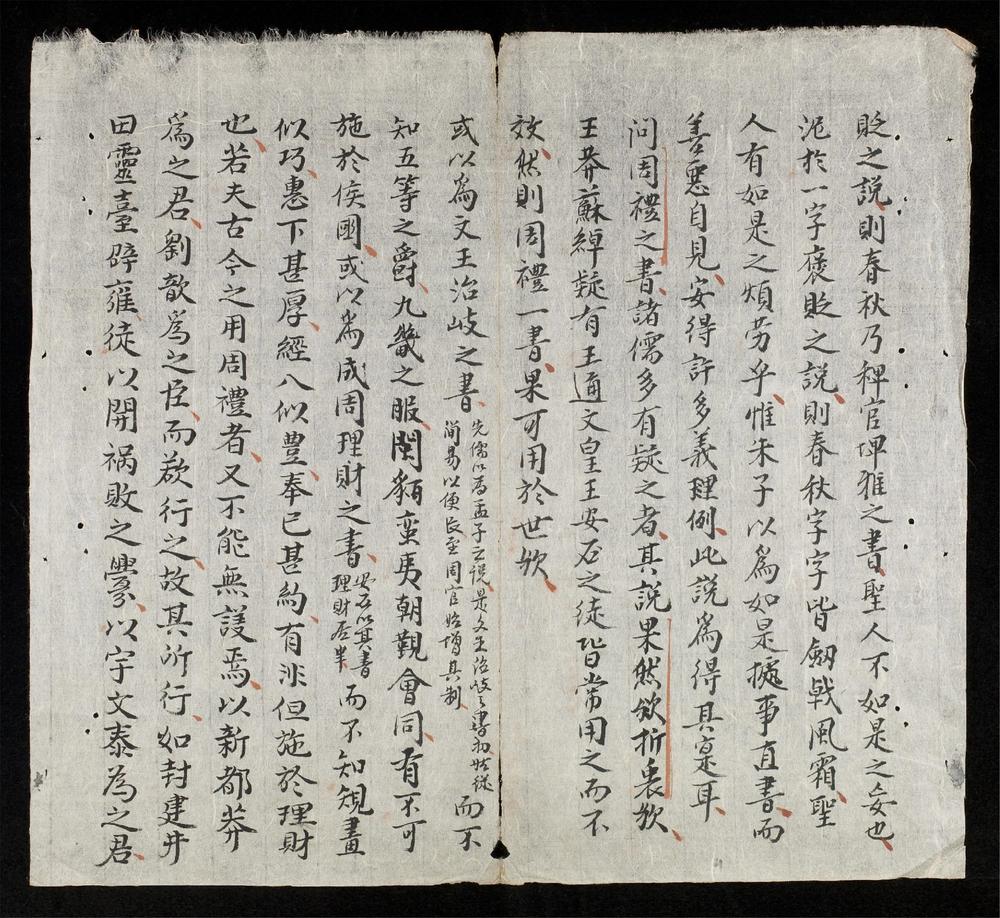 貶之説則春秋乃稗官埤雅之書聖人不如是之妄也
泥於一字褒貶之説則春秋字字皆劔戟風霜聖
人有如是之煩劳乎惟朱子以爲如是據事直書而
善惡自見安得許多義理例此説爲得其寔耳
问周禮之書諸儒多有疑之者其説果然欤折衷欤
王莽蘇綽疑有王通文皇王安石之徒皆常用之而不
效然則周禮一書果可用於世欤
或以為文王治岐之書先儒以为孟子之説是文王治岐之書初姑從简易以便民至周官始增其制而不
知五等之爵九畿之服閩貊蛮夷朝覲會同有不可
施於侯國或以爲成周理財之書安石以其書理財居半而不知規畫
似巧惠下甚厚經入似豊奉已甚約有非但施於理財
也若夫古今之用周禮者又不能無議焉以新都莽
爲之君劉歆爲之臣而欲行之故其所行如封建井
田靈臺辟雍徒以開祸敗之釁以宇文泰為之君